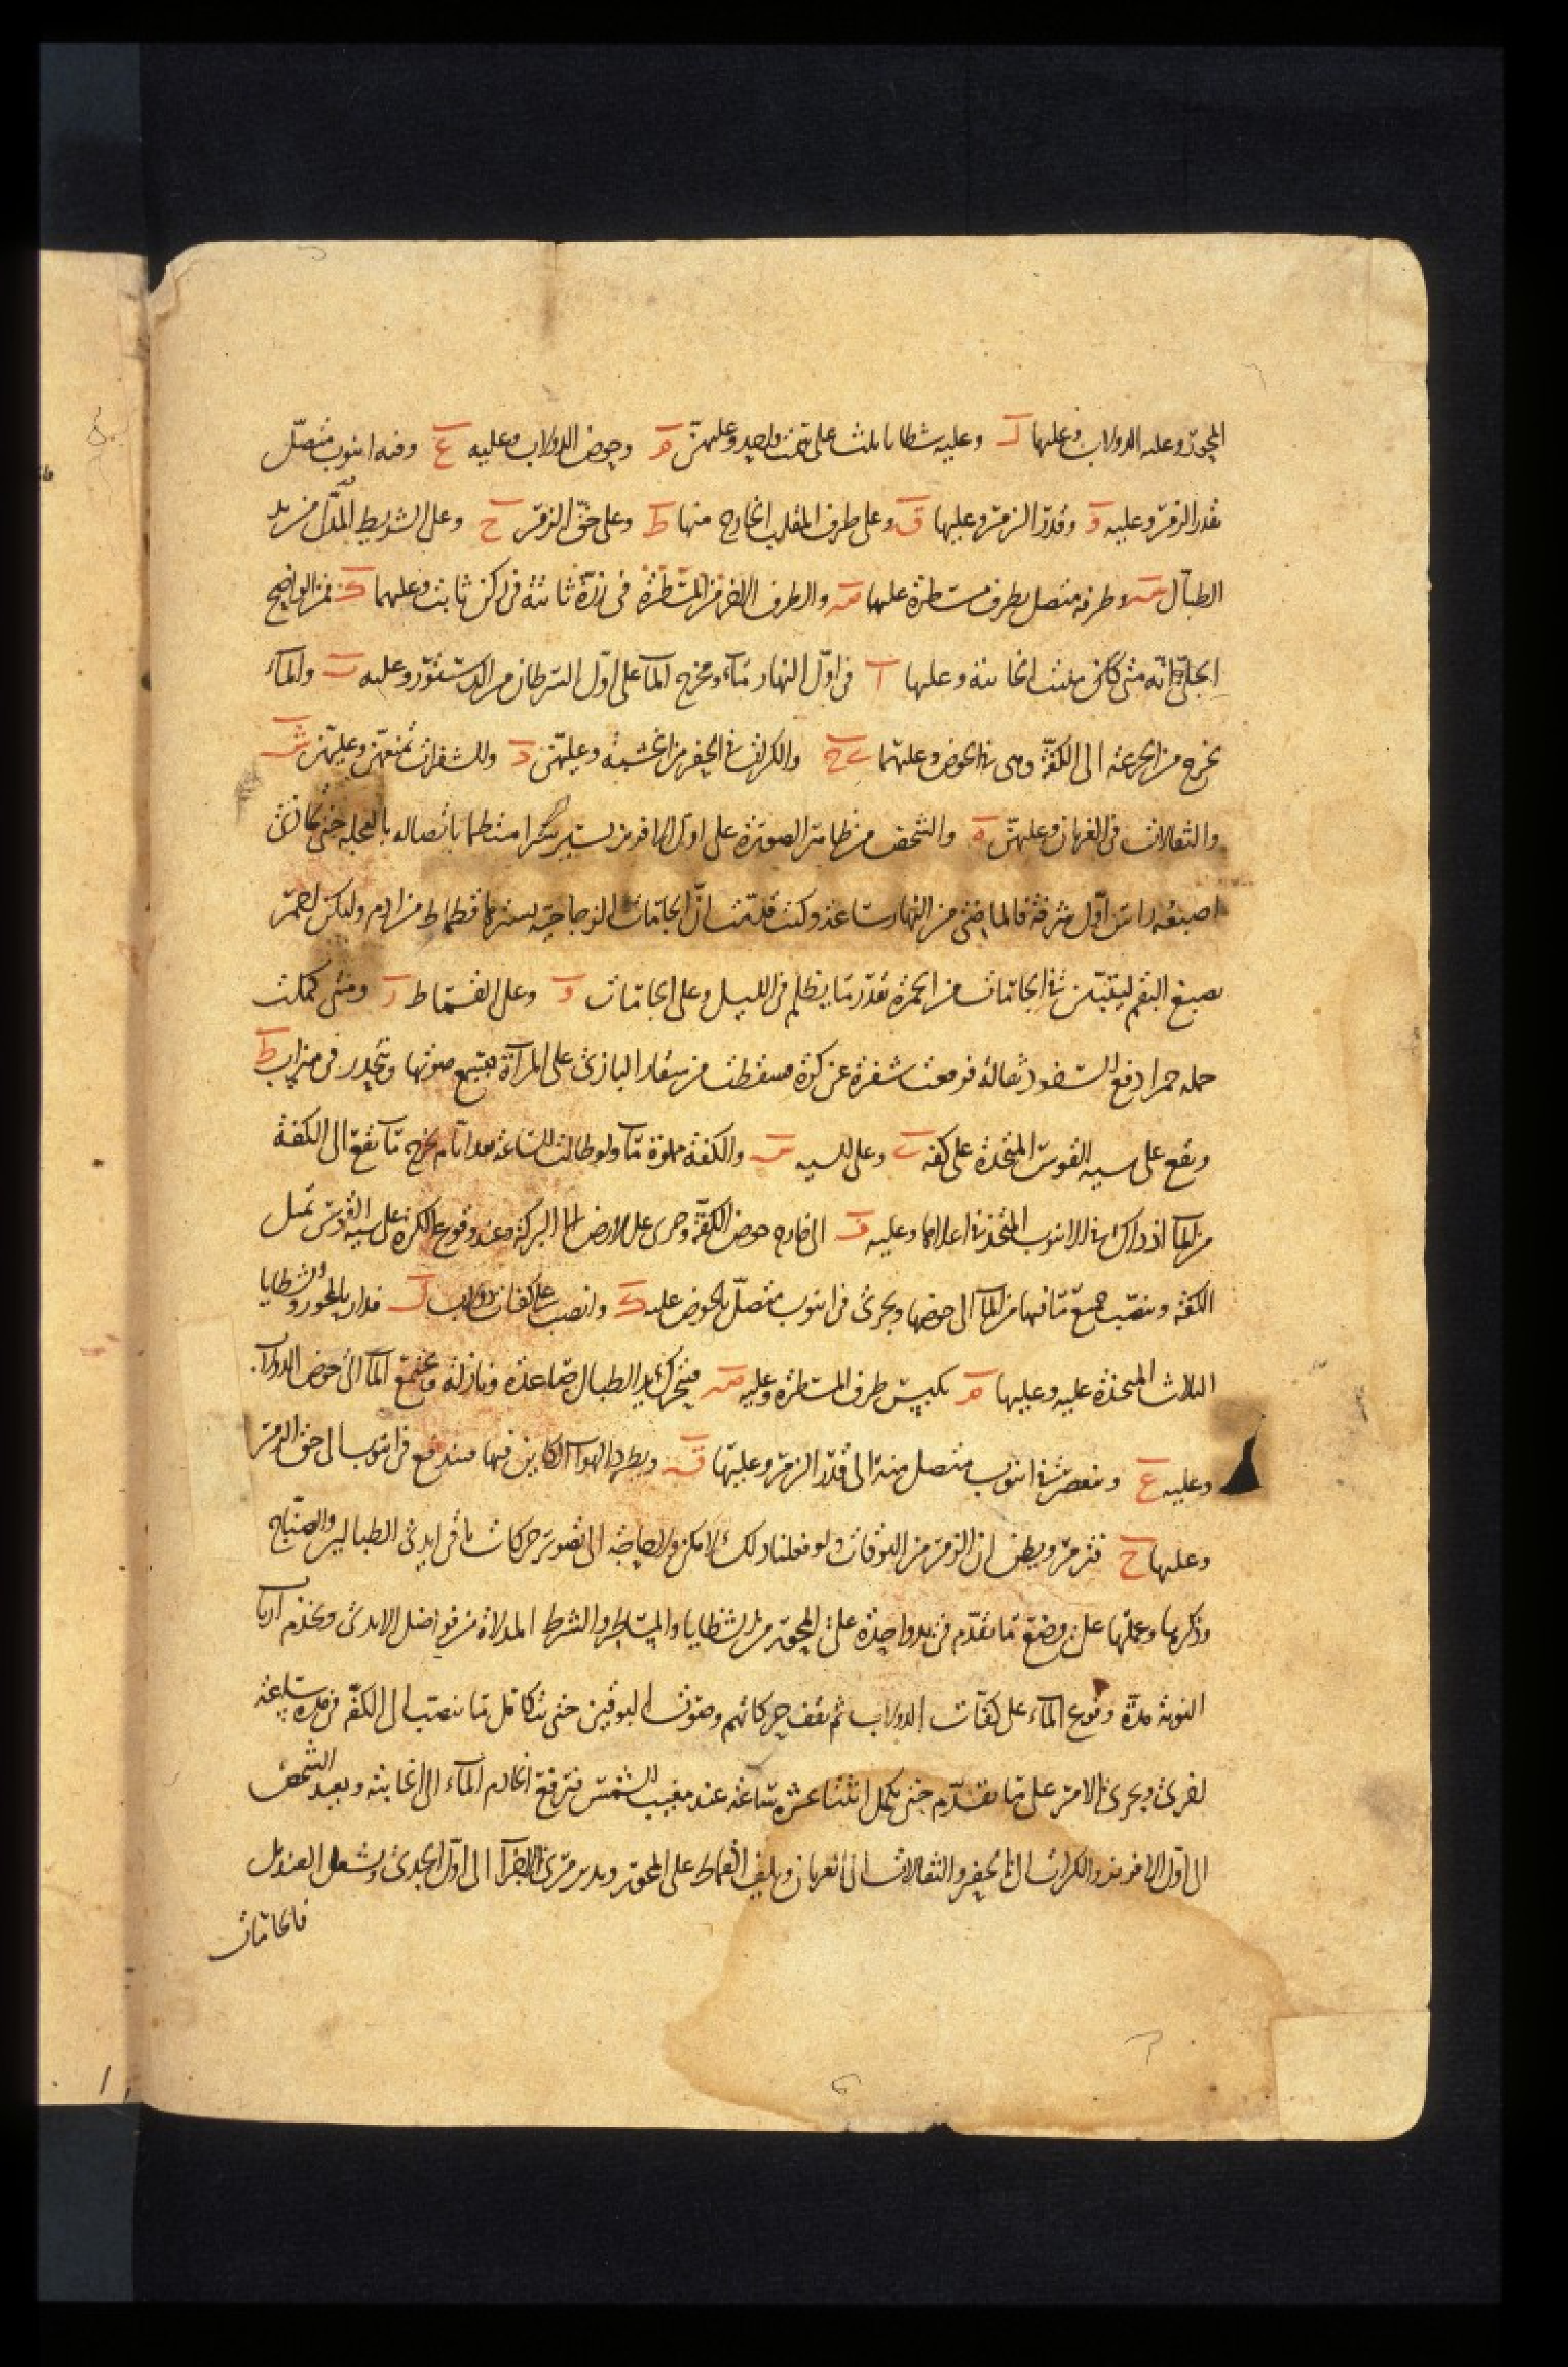 المحور وعليه الدولاب وعليها لـ وعليه شظايا ثلث على سمت واحد وعليهن م وحوض الدولاب وعليه ع وفيه انبوب متصل
بقدر الزمر وعليه و وقدر الزمر وعليها ف وعلى طرف المقلب الخارج منها ط وعلى حق الزمر ح وعلى الشريط المدلى من يد
الطبال س وطرفه متصل بطرف مسطرة عليها ص والطرف الاخر من المسطرة في رزة ثابتة في ركن ثابت وعليهما ك فمن الواضح
الجلي انه متى كان ملئت الخابية وعليها ا في اول النهار ماء ومخرج الماء على اول السرطان من الدستور وعليه ب والماء
يخرج من الجزعة الى الكفة وهي في الحوض وعليهما ى ح والكرات في الحفر من الخشبة وعليهن د والشفرات تمنعهن وعليهن ش
والثقالات في الغربان وعليهن ه والشخص من ظاهر الصورة على اول الافريز يسير سيرا منتظما باتصاله بالعجلة حتى يحاذي
اصبعه راس اول شرفة فالماضي من النهار ساعة وكنت قدمت ان الجامات الزجاجية يسترها قطماط من ادم وليكن احمر
بصبغ البقم ليتبين في الجامات من الحمرة بقدر ما يظلم في الليل وعلى الجامات و وعلى القماط ر ومتى كملت
جملة حمرا دفع السفود ثقالة فرفعت شفرة عن كرة فسقطت من منقار البازي على المرآة فيسمع صوتها وتنحدر في ميزاب ط
وتقع على سية القوس المتخذة على كفة ى وعلى السية س والكفة مملوة ماء ولو طالت الساعة بعد اتام بخرج ما يقع الى الكفة
من الماء اذ ذاك في الانبوب المتخذ في اعلاها وعليه ف الى خارج حوض الكفة وجرى على الارض الى البركة وعند وقوع الكرة على سية القوس تميل
الكفة وينصب جميع ما فيها من الماء الى حوضها ويجرى في انبوب متصل بالحوض عليه ك وانصب على كفات دولاب لـ فدار بالمحور والشظايا
الثلاث المتخذة عليه وعليها م بكبس طرف المسطرة وعليه ص فيتحرك يد الطبال صاعدة ونازلة ويجتمع الماء الى حوض الدولاب
وعليه ع وينعصر في انبوب متصل منه الى قدر الزمر وعليها ف ويطرد الهوآ الكاين فيها فيندفع في انبوب الى حق الزمر
وعليها ح فتزمر ويظن ان الزمر من البوقات ولو فعلنا ذلك لامكن ولا حاجة الى تصوير حركات باقى ايدي الطبالين والصناج
وذكرها وعملها على وضع ما تقدم في يد واحدة على المحور من الشظايا والمساطر والشرط المدلاة من فواضل الايدي وتخدم ارباب
النوبة مدة وقوع الماء على كفات الدولاب ثم تقف حركاتهم وصوت البوقين حتى تتكامل ما ينصب الى الكفة في مدة ساعة
اخرى ويجرى الامر على ما تقدم حتى يكمل اثنتا عشرة ساعة عند مغيب الشمس فترفع الخادم الماء الى الخابية ويعيد الشخص
الى اول الافريز والكرات الى الحفر والثقالات الى الغربان ويلف القماط على المحور ويدير مرى الاجزآ الى اول الجدي ويشعل القنديل
فالجامات